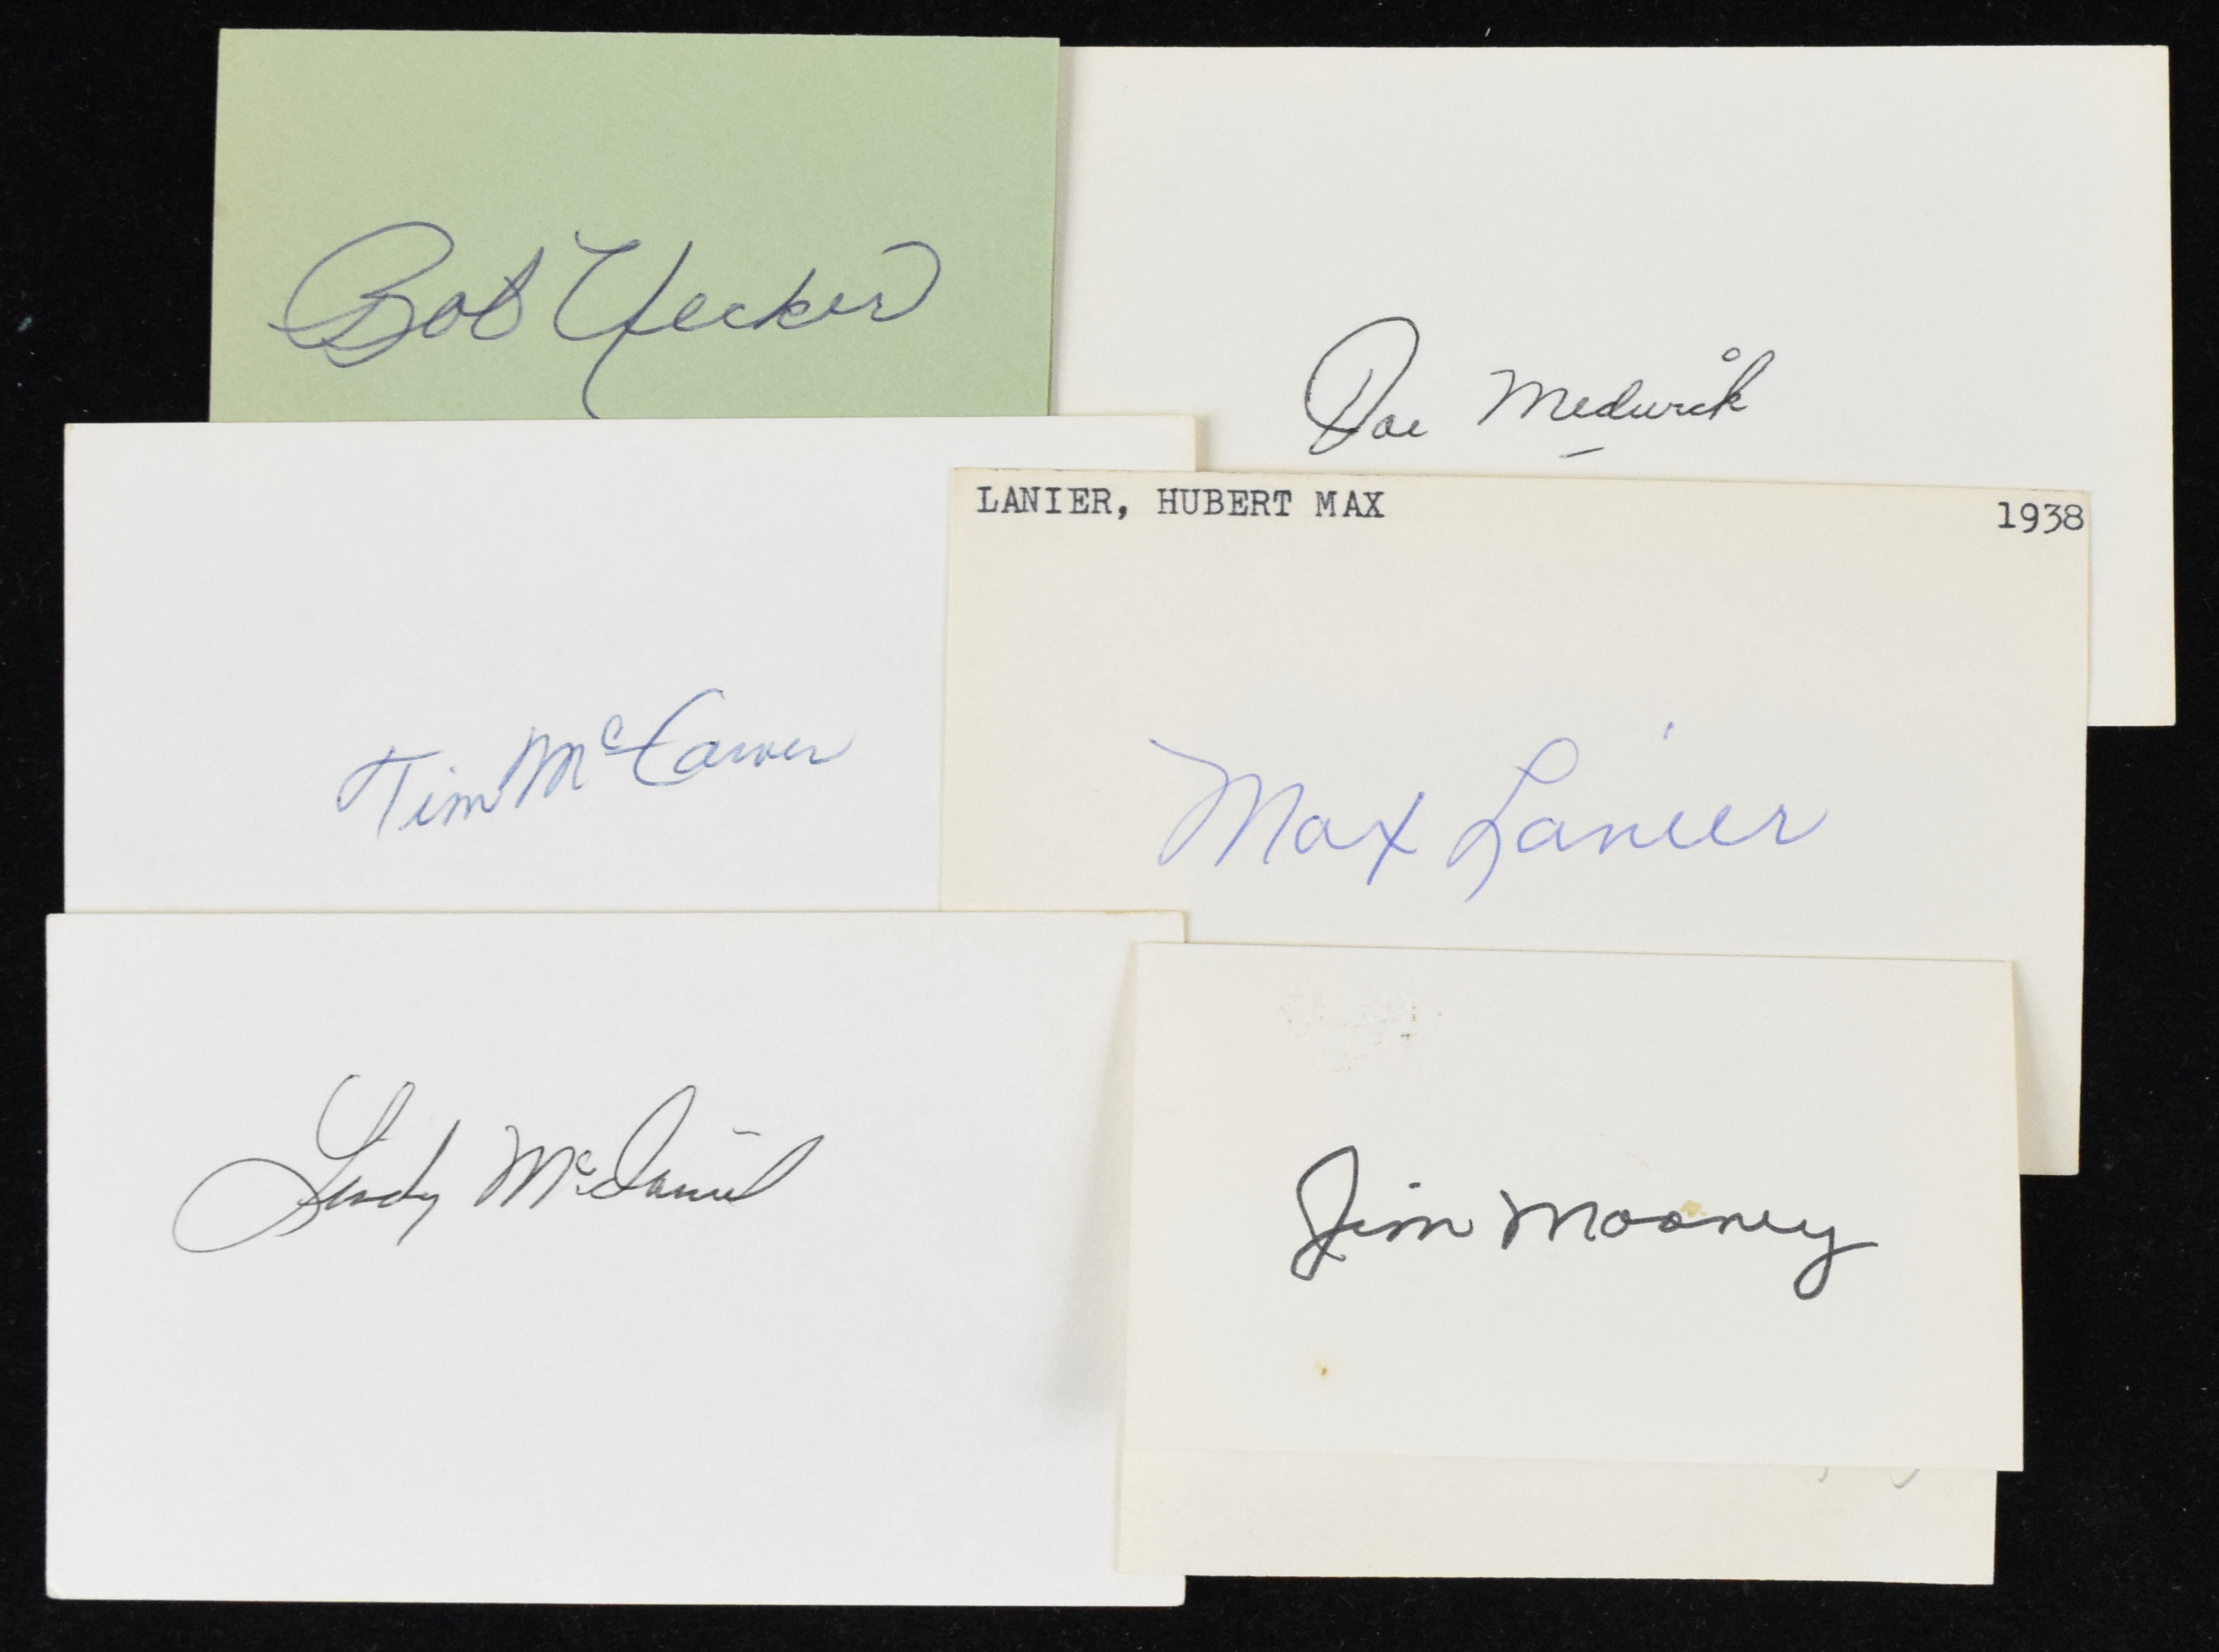 Bob Uecker
Joe Medwick
LANIER, HUBERT MAX 1938
Tim McCarver
Max Lanier
Lindy McDaniel
Jim Mooney